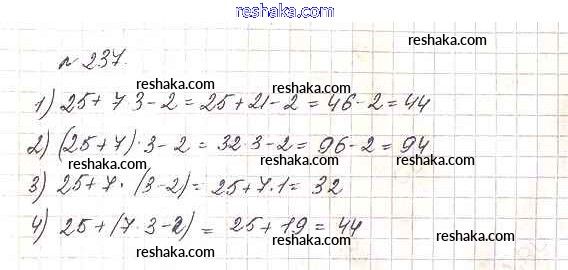 www.reshaka.com
reshaka.com
№ 237.
reshaka.com
1) 25 + 7 · 3 - 2 = 25 + 21 - 2 = 46 - 2 = 44
reshaka.com reshaka.com
2) (25 + 7) · 3 - 2 = 32 · 3 - 2 = 96 - 2 = 94
reshaka.com reshaka.com
3) 25 + 7 · (3 - 2) = 25 + 7 · 1 = 32
reshaka.com
4) 25 + (7 · 3 - 2) = 25 + 19 = 44
reshaka.com reshaka.com
reshaka.com